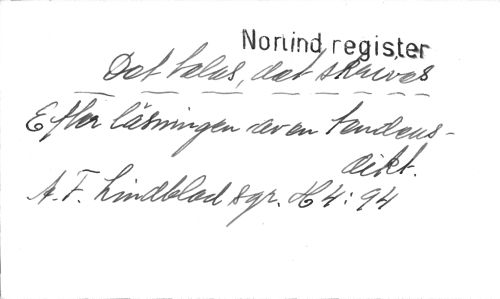 Norind register
Det talas, det skrives
Efter läsningen av en tendens-
dikt.
A. F. Lindblad sgr. H 4: 94